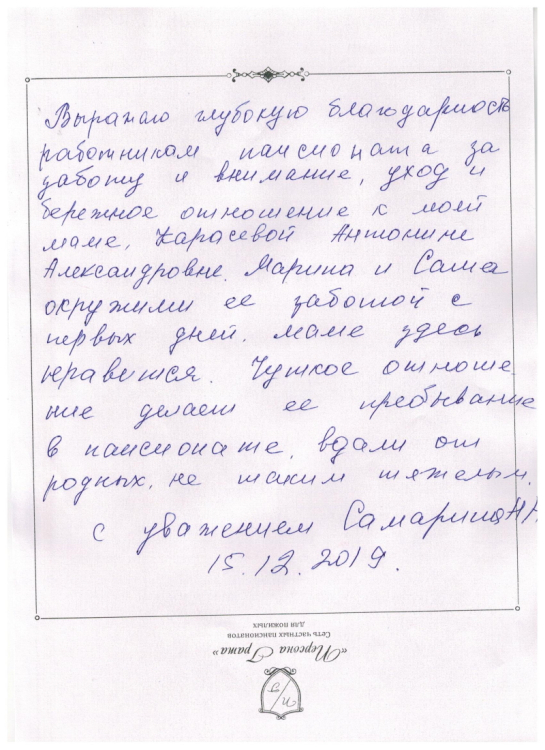 Выражаю глубокую благодарность
работникам пансионата за
заботу и внимание, уход и
бережное отношение к моей
маме, Карасевой Антонине
Александровне. Марина и Саша
окружили ее заботой с
первых дней. маме здесь
нравится. Чуткое отноше
ние делает ее пребывание
в пансионате, вдали от
родных, не таким тяжелым.
с уважением Самарина Н.
15.12.2019.
«Персона Грата»
Сеть частных пансионатов
для пожилых